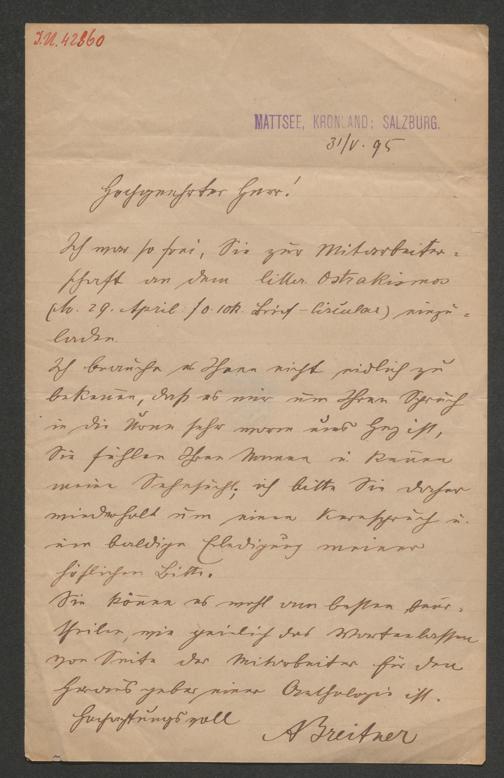 I.N. 42860
MATTSEE, KRONLAND: SALZBURG.
31/V. 95
Hochgeehrter Herr!
Ich war so frei, Sie zur Mitarbeiter-
schaft an dem litter. Ostrakismos
(do. 29. April Brief-Circular) einzu-
laden.
Ich brauche es Ihnen nicht eidlich zu
bekennen, daß es mir um Ihren Spruch
in die Urne sehr warm ums Herz ist,
Sie fühlen Ihren Namen u. kennen
meine Sehnsucht; ich bitte Sie daher
wiederholt um einen Kernspruch u.
um baldige Erledigung meiner
höflichen Bitte.
Sie können es wohl am besten beur-
theilen, wie peinlich das Wartenlassen
von Seite der Mitarbeiter für den
Herausgeber einer Anthologie ist.
Hochachtungsvoll
ABreitner